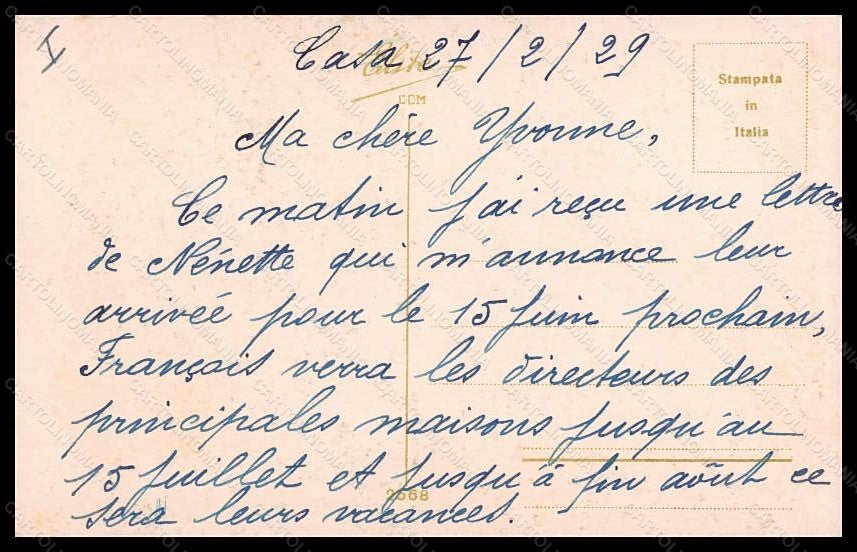 Casa 27/2/29
CCM
Stampata
in
Italia
Ma chère Yvonne,
Ce matin j'ai reçu une lettre
de Nénette qui m'annonce leur
arrivée pour le 15 juin prochain,
Français verra les directeurs des
principales maisons jusqu'au
15 juillet et jusqu'à fin août ce
sera leurs vacances.
2568
CARTOLINOMANIA